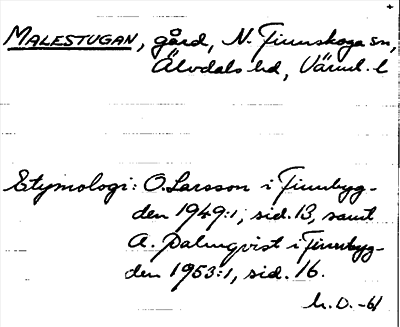 MALESTUGAN, gård, N. Finnskoga sn,
Älvdals hd, Värml. l
Etymologi: O. Larsson i Finnbyg-
den 1949:1, sid. 13, samt
A. Palmqvist i Finnbyg-
den 1953:1, sid. 16.
h. O. -61